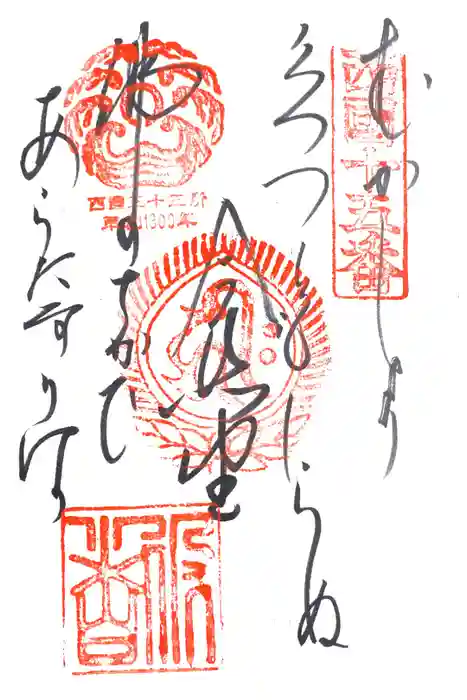 西国十五番
むかしより
たつともしらぬ
今熊野
西国三十三所
草創1300年
佛のちかひ
あらたなりけり